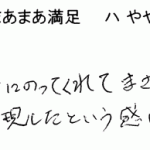 まあまあ満足 ハ やや
にのってくれて まさ
現したという感